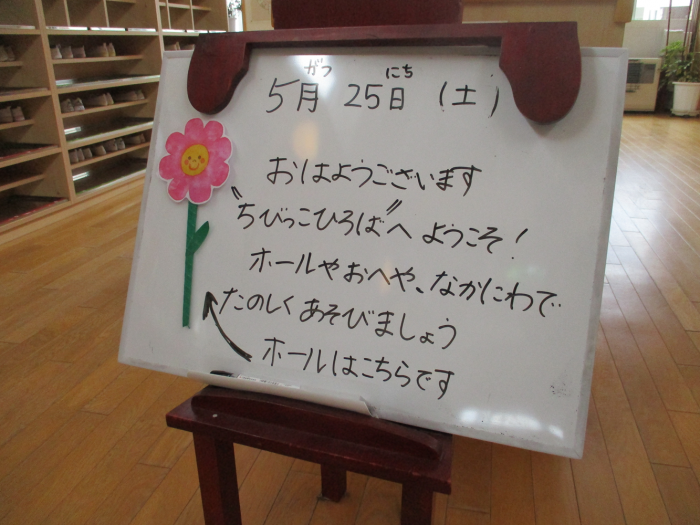 がつ にち
5月 25日 (土)
おはようございます
"ちびっこひろば"へ ようこそ!
ホールやおへや、なかにわで
たのしくあそびましょう
ホールはこちらです